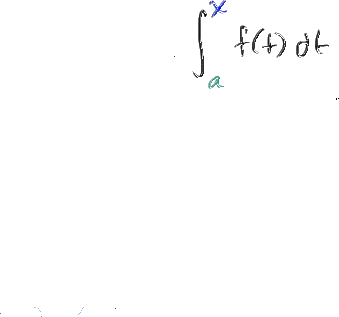 ∫ₐˣ f(t) dt